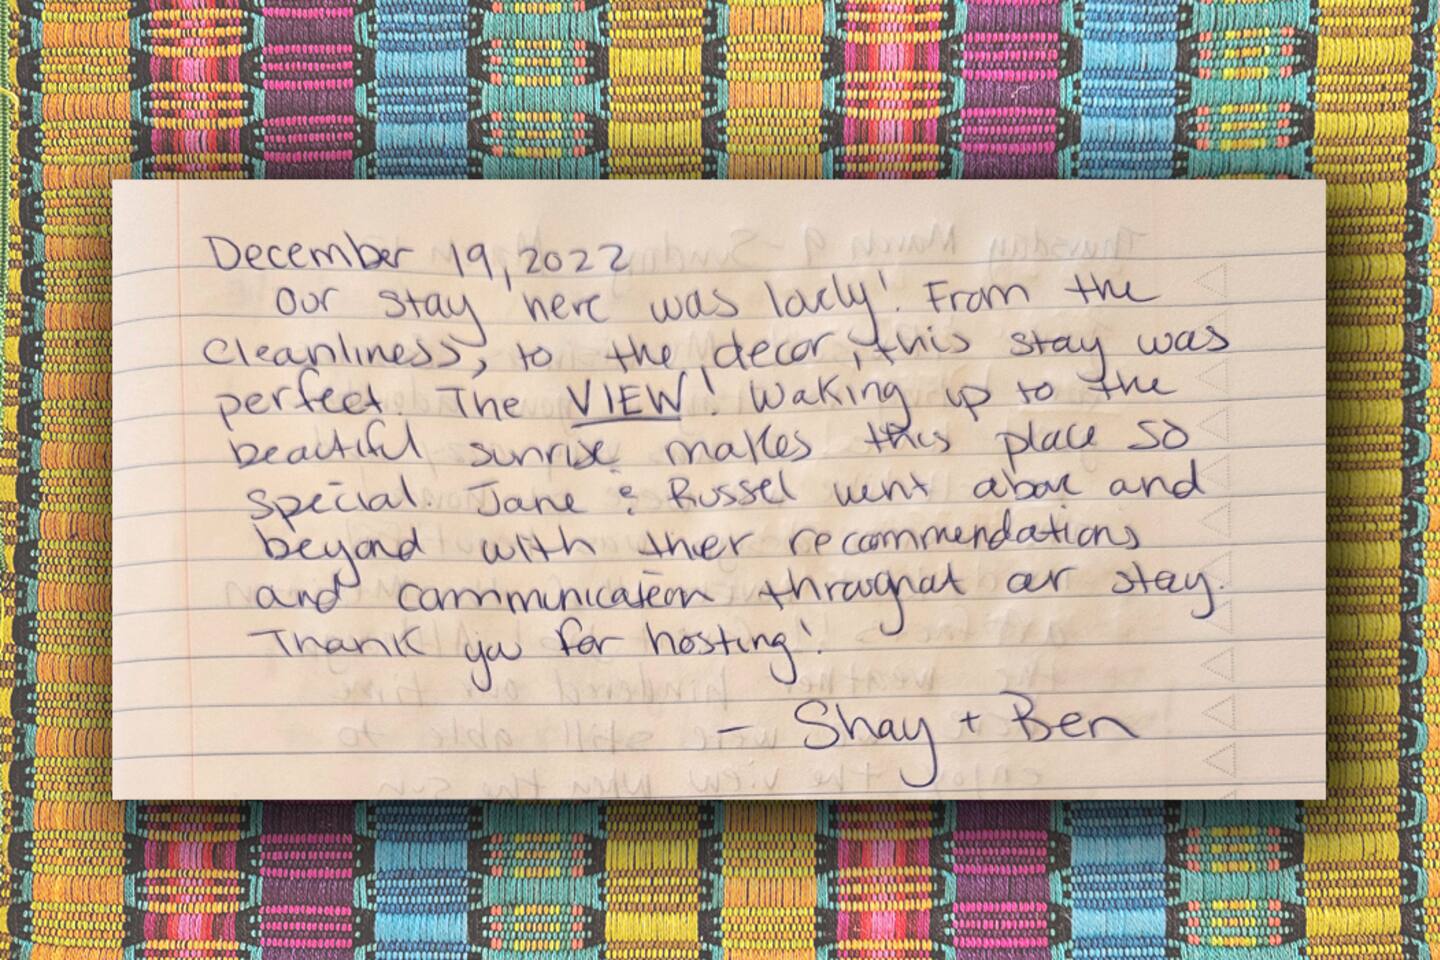 December 19, 2022
Our stay here was lovely! From the
cleanliness, to the decor, this stay was
perfect. The VIEW! Waking up to the
beautiful sunrise makes this place so
special. Jane & Russel went above and
beyond with thier recommendations
and communication throughout our stay.
Thank you for hosting!
- Shay + Ben